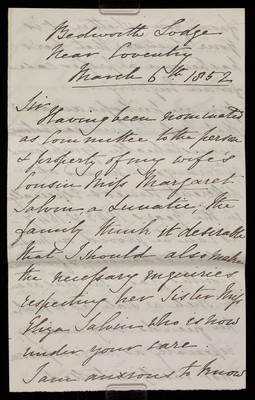 Bedworth Lodge
Near Coventry
March 6th 1852
Sir
Having been nominated
as Committee to the person
& property of my wife's
Cousin Miss Margaret
Salvin a Lunatic, the
family think it desirable
that I should also make
the necessary enquiries
respecting her Sister Miss
Eliza Salvin who is now
under your care.
I am anxious to know